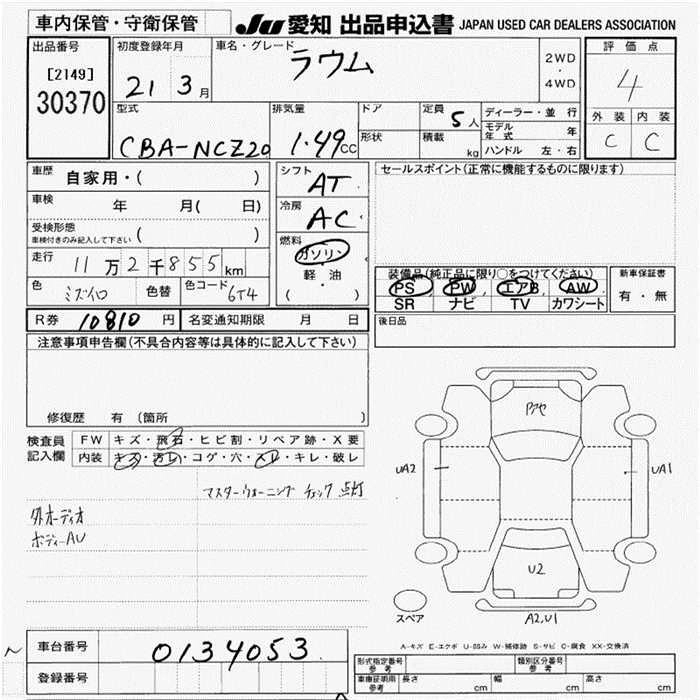 車内保管・守衛保管
JU 愛知 出品申込書 JAPAN USED CAR DEALERS ASSOCIATION
出品番号
[2149]
30370
初度登録年月
21 3月
車名・グレード
ラウム
2WD
・
4WD
評価点
4
外装 内装
C C
型式
CBA-NCZ20
排気量
1.49CC
ドア
形状
定員 5人
積載 kg
ディーラー・並行
モデル年式 年
ハンドル 左・右
車歴
自家用・( )
車検
年 月( 日)
受検形態
車検付きのみ記入して下さい ( )
走行
11万2千855km
色
ミズイロ
色替
色コード
6T4
シフト
AT
冷房
AC
燃料
ガソリン
・
軽・油
( )
セールスポイント(正常に機能するものに限ります)
装備品(純正品に限り○をつけてください)
PS PW エアB AW
SR ナビ TV カワシート
新車保証書
有・無
後日品
R券 10810円
名変通知期限 月 日
注意事項申告欄(不具合内容等は具体的に記入して下さい)
修復歴 有 (箇所 )
検査員
記入欄
FW キズ・飛石・ヒビ割・リペア跡・X要
内装 キズ・汚レ・コゲ・穴・スレ・キレ・破レ
マスターウォーニング チェック 点灯
外オーディオ
ボディーAU
UA2
UA1
U2
A2,U1
スペア
A-キズ E-エクボ U-凹み W-補修跡 S-サビ C-腐食 XX-交換済
車台番号
0134053
登録番号
形式指定番号
参考
類別区分番号
参考
車庫証明用
参考
長さ cm
幅 cm
高さ cm